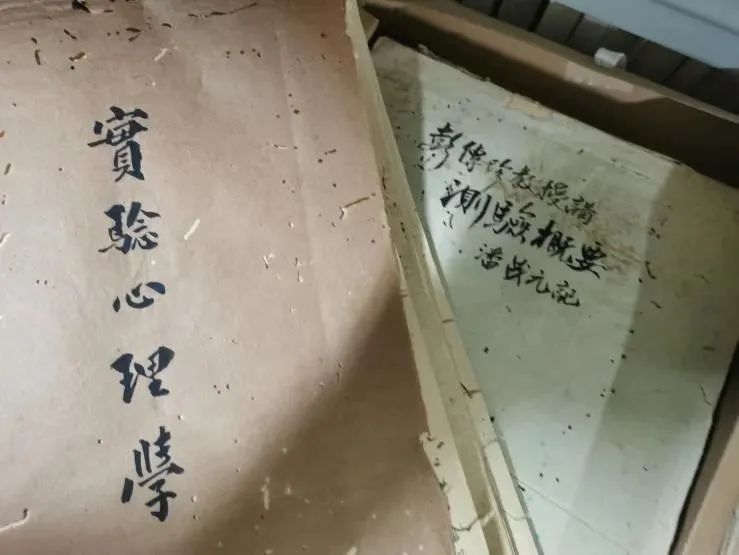 實驗心理學
彭傳珍教授講
測驗概要
潘茂元記